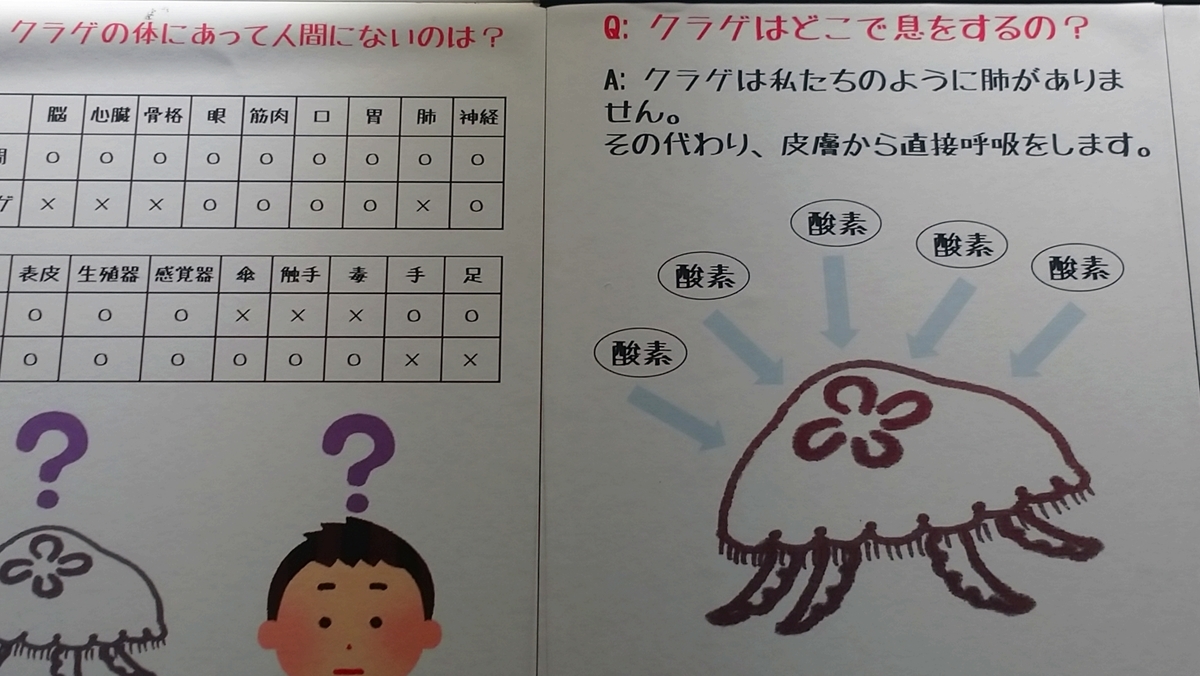 クラゲの体にあって人間にないのは？
脳 心臓 骨格 眼 筋肉 口 胃 肺 神経
間 O O O O O O O O O
ゲ × × × O O O O × O
表皮 生殖器 感覚器 傘 触手 毒 手 足
O O O × × × O O
O O O O O O × ×
?
?
Q: クラゲはどこで息をするの？
A: クラゲは私たちのように肺がありま
せん。
その代わり、皮膚から直接呼吸をします。
酸素
酸素
酸素
酸素
酸素